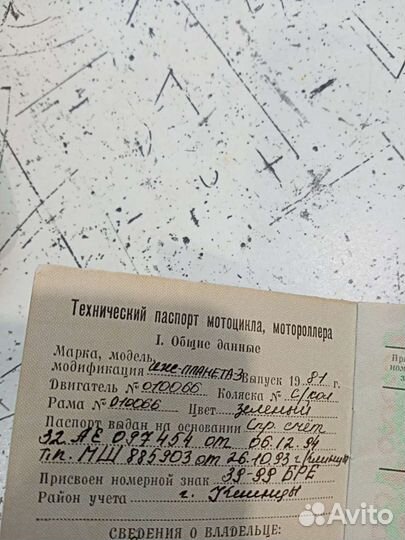 Технический паспорт мотоцикла, мотороллера
I. Общие данные
Марка, модель,
модификация иж-ПЛАНЕТА3 Выпуск 1981 г.
Двигатель № 010066 Коляска № б/кол
Рама № 010066 Цвет зеленый
Паспорт выдан на основании Спр. счет
32 АЕ 097454 от 06.12.94
т.п. МШ 885903 от 26.10.93 г Клинцы
Присвоен номерной знак 39-99 БРЕ
Район учета г. Клинцы
СВЕДЕНИЯ О ВЛАДЕЛЬЦЕ:
Avito